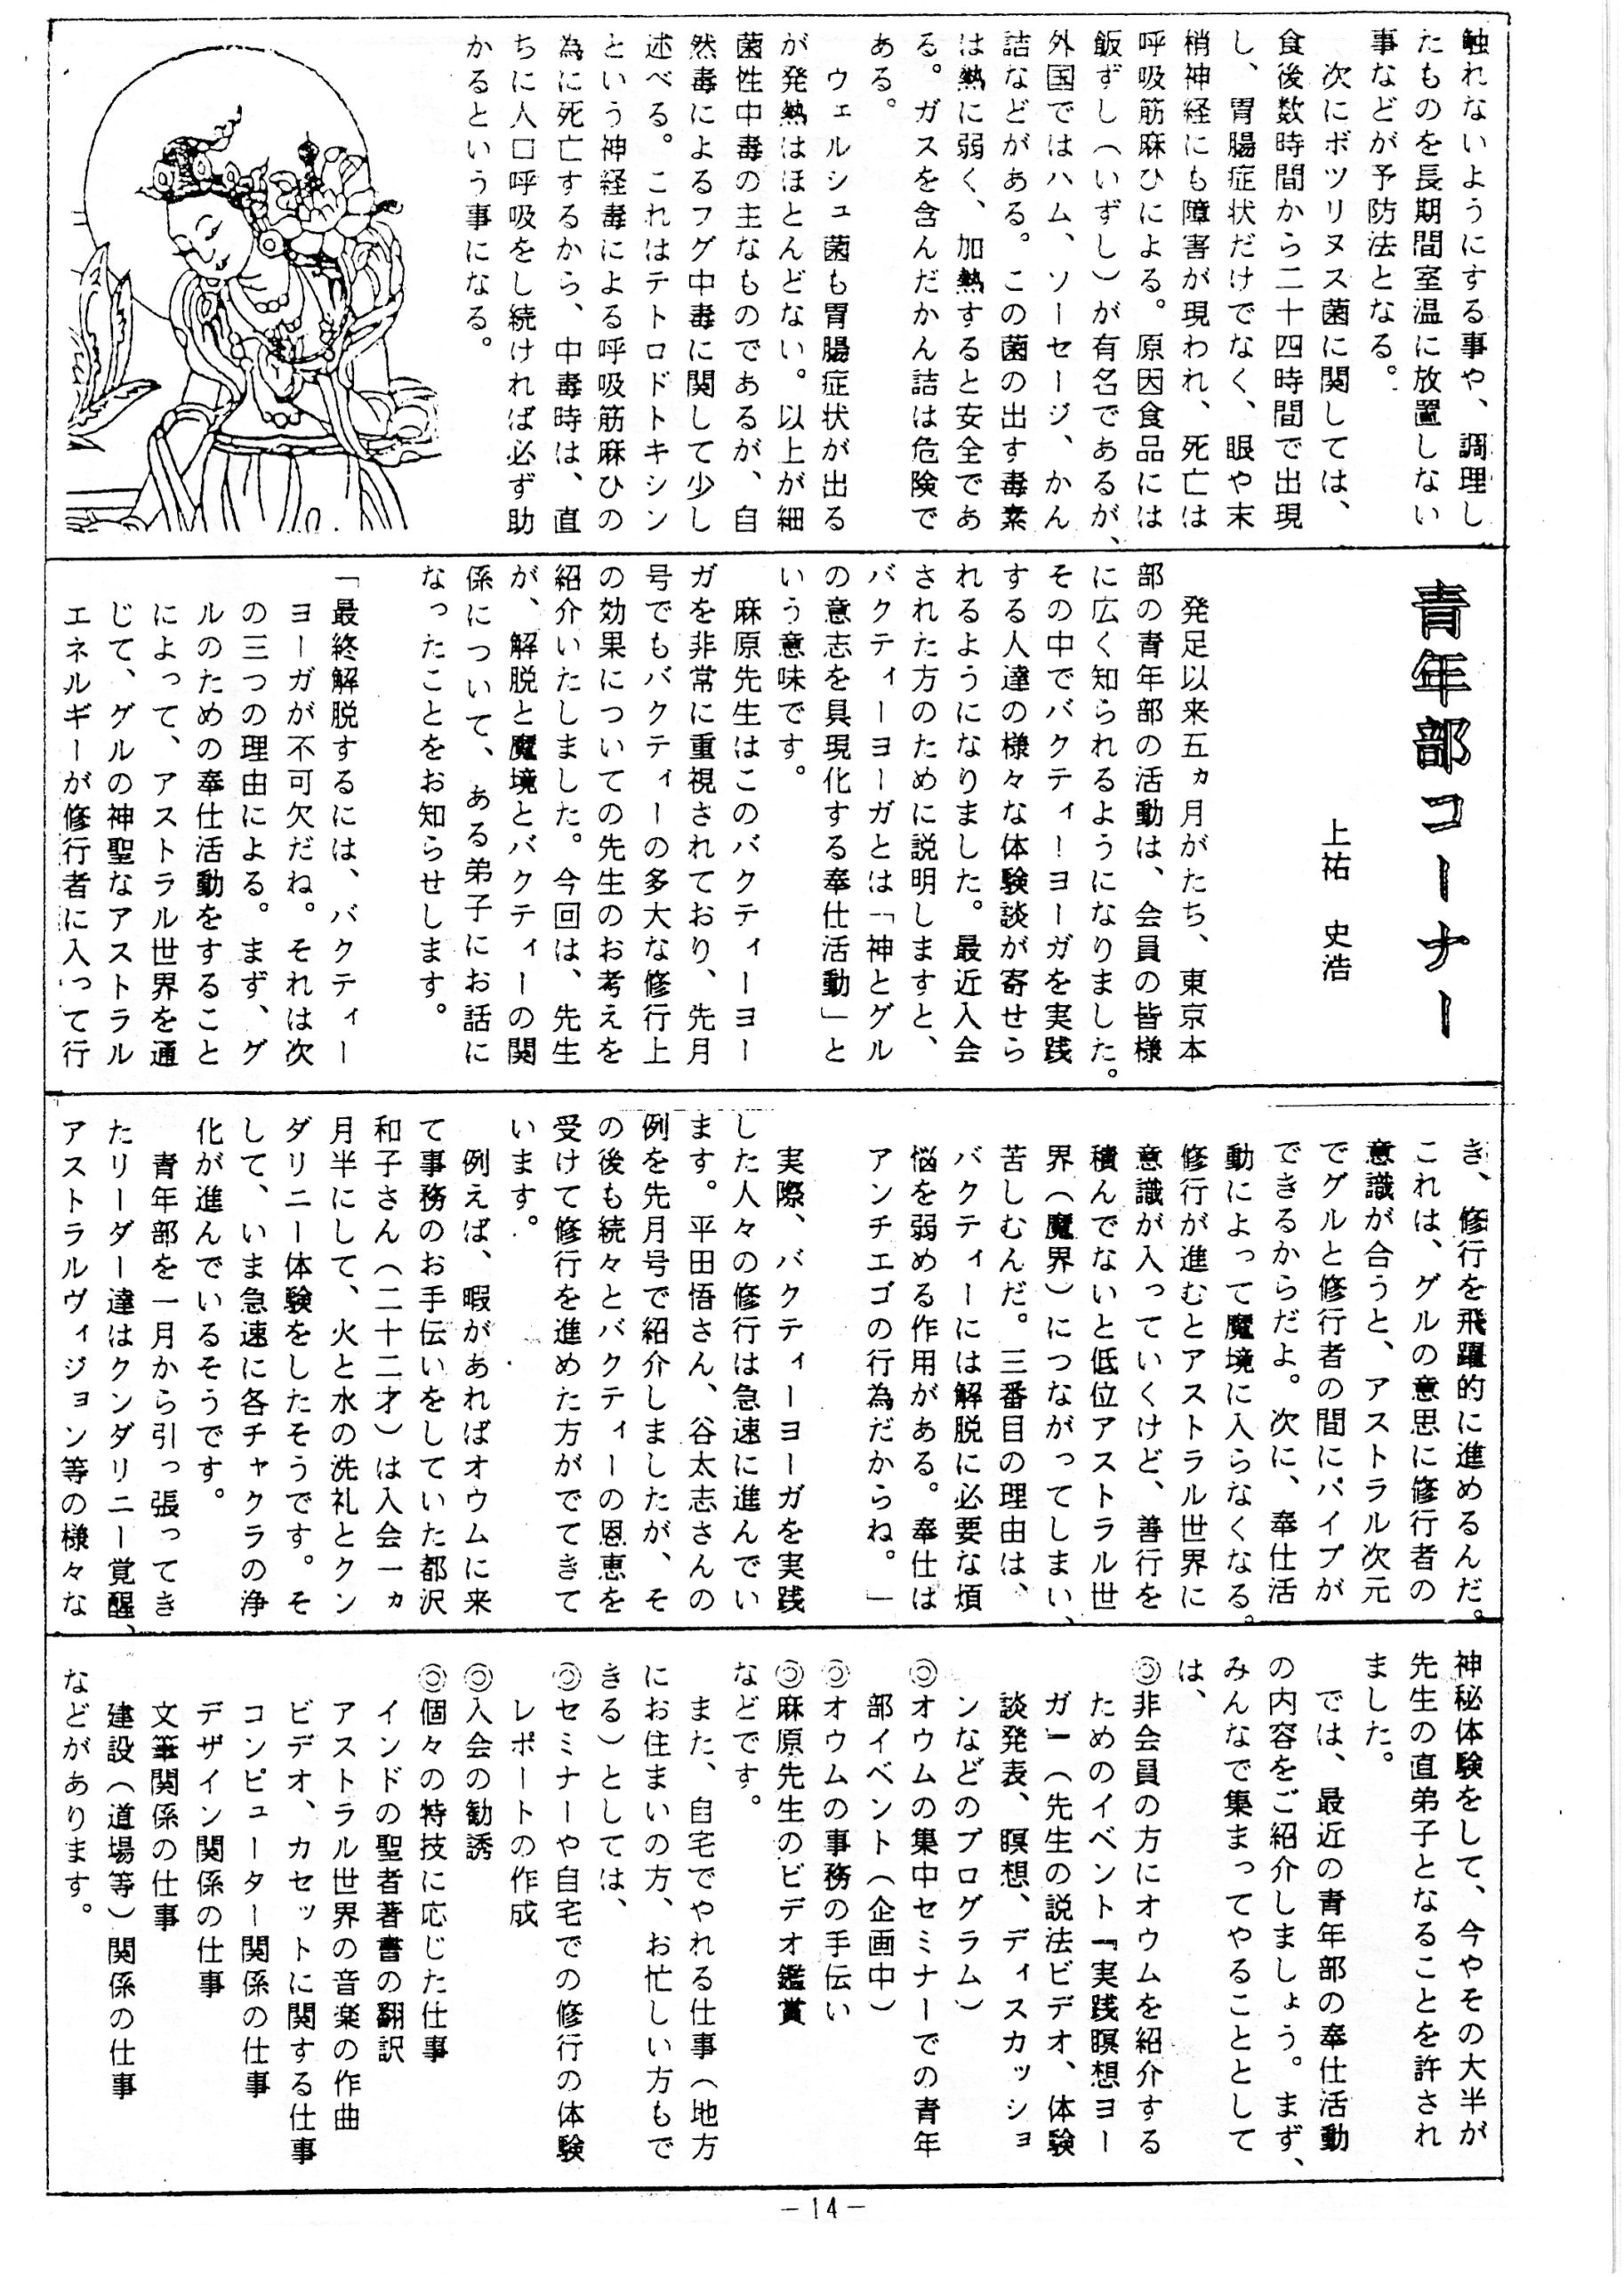 触れないようにする事や、調理し
たものを長期間室温に放置しない
事などが予防法となる。
次にボツリヌス菌に関しては、
食後数時間から二十四時間で出現
し、胃腸症状だけでなく、眼や末
梢神経にも障害が現われ、死亡は
呼吸筋麻ひによる。原因食品には
飯ずし（いずし）が有名であるが、
外国ではハム、ソーセージ、かん
詰などがある。この菌の出す毒素
は熱に弱く、加熱すると安全であ
る。ガスを含んだかん詰は危険で
ある。
ウェルシュ菌も胃腸症状が出る
が発熱はほとんどない。以上が細
菌性中毒の主なものであるが、自
然毒によるフグ中毒に関して少し
述べる。これはテトロドトキシン
という神経毒による呼吸筋麻ひの
為に死亡するから、中毒時は、直
ちに人口呼吸をし続ければ必ず助
かるという事になる。
青年部コーナー
上祐　史浩
発足以来五ヵ月がたち、東京本
部の青年部の活動は、会員の皆様
に広く知られるようになりました。
その中でバクティーヨーガを実践
する人達の様々な体験談が寄せら
れるようになりました。最近入会
された方のために説明しますと、
バクティーヨーガとは「神とグル
の意志を具現化する奉仕活動」と
いう意味です。
麻原先生はこのバクティーヨー
ガを非常に重視されており、先月
号でもバクティーの多大な修行上
の効果についての先生のお考えを
紹介いたしました。今回は、先生
が、解脱と魔境とバクティーの関
係について、ある弟子にお話に
なったことをお知らせします。
「最終解脱するには、バクティー
ヨーガが不可欠だね。それは次
の三つの理由による。まず、グ
ルのための奉仕活動をすること
によって、アストラル世界を通
じて、グルの神聖なアストラル
エネルギーが修行者に入って行
き、修行を飛躍的に進めるんだ。
これは、グルの意思に修行者の
意識が合うと、アストラル次元
でグルと修行者の間にパイプが
できるからだよ。次に、奉仕活
動によって魔境に入らなくなる。
修行が進むとアストラル世界に
意識が入っていくけど、善行を
積んでないと低位アストラル世
界（魔界）につながってしまい、
苦しむんだ。三番目の理由は、
バクティーには解脱に必要な煩
悩を弱める作用がある。奉仕は
アンチエゴの行為だからね。」
実際、バクティーヨーガを実践
した人々の修行は急速に進んでい
ます。平田悟さん、谷太志さんの
例を先月号で紹介しましたが、そ
の後も続々とバクティーの恩恵を
受けて修行を進めた方がでてきて
います。
例えば、暇があればオウムに来
て事務のお手伝いをしていた都沢
和子さん（二十二才）は入会一ヵ
月半にして、火と水の洗礼とクン
ダリニー体験をしたそうです。そ
して、いま急速に各チャクラの浄
化が進んでいるそうです。
青年部を一月から引っ張ってき
たリーダー達はクンダリニー覚醒、
アストラルヴィジョン等の様々な
神秘体験をして、今やその大半が
先生の直弟子となることを許され
ました。
では、最近の青年部の奉仕活動
の内容をご紹介しましょう。まず、
みんなで集まってやることとして
は、
◎非会員の方にオウムを紹介する
ためのイベント「実践瞑想ヨー
ガー（先生の説法ビデオ、体験
談発表、瞑想、ディスカッショ
ンなどのプログラム）
◎オウムの集中セミナーでの青年
部イベント（企画中）
◎オウムの事務の手伝い
◎麻原先生のビデオ鑑賞
などです。
また、自宅でやれる仕事（地方
にお住まいの方、お忙しい方もで
きる）としては、
◎セミナーや自宅での修行の体験
レポートの作成
◎入会の勧誘
◎個々の特技に応じた仕事
インドの聖者著書の翻訳
アストラル世界の音楽の作曲
ビデオ、カセットに関する仕事
コンピューター関係の仕事
デザイン関係の仕事
文筆関係の仕事
建設（道場等）関係の仕事
などがあります。
－14－